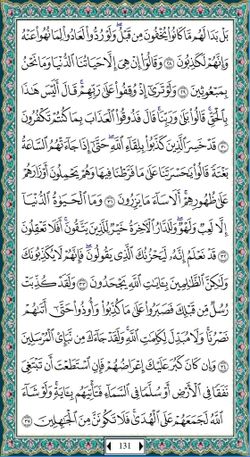 بَلْ بَدَا لَهُم مَّا كَانُوا۟ يُخْفُونَ مِن قَبْلُ ۖ وَلَوْ رُدُّوا۟ لَعَادُوا۟ لِمَا نُهُوا۟ عَنْهُ
وَإِنَّهُمْ لَكَـٰذِبُونَ ﴿٢٨﴾ وَقَالُوٓا۟ إِنْ هِىَ إِلَّا حَيَاتُنَا ٱلدُّنْيَا وَمَا نَحْنُ
بِمَبْعُوثِينَ ﴿٢٩﴾ وَلَوْ تَرَىٰٓ إِذْ وُقِفُوا۟ عَلَىٰ رَبِّهِمْ ۚ قَالَ أَلَيْسَ هَـٰذَا
بِٱلْحَقِّ ۚ قَالُوا۟ بَلَىٰ وَرَبِّنَا ۚ قَالَ فَذُوقُوا۟ ٱلْعَذَابَ بِمَا كُنتُمْ تَكْفُرُونَ
﴿٣٠﴾ قَدْ خَسِرَ ٱلَّذِينَ كَذَّبُوا۟ بِلِقَآءِ ٱللَّهِ ۖ حَتَّىٰٓ إِذَا جَآءَتْهُمُ ٱلسَّاعَةُ
بَغْتَةً قَالُوا۟ يَـٰحَسْرَتَنَا عَلَىٰ مَا فَرَّطْنَا فِيهَا وَهُمْ يَحْمِلُونَ أَوْزَارَهُمْ
عَلَىٰ ظُهُورِهِمْ ۚ أَلَا سَآءَ مَا يَزِرُونَ ﴿٣١﴾ وَمَا ٱلْحَيَوٰةُ ٱلدُّنْيَآ
إِلَّا لَعِبٌ وَلَهْوٌ ۖ وَلَلدَّارُ ٱلْـَٔاخِرَةُ خَيْرٌ لِّلَّذِينَ يَتَّقُونَ ۗ أَفَلَا تَعْقِلُونَ
﴿٣٢﴾ قَدْ نَعْلَمُ إِنَّهُۥ لَيَحْزُنُكَ ٱلَّذِى يَقُولُونَ ۖ فَإِنَّهُمْ لَا يُكَذِّبُونَكَ
وَلَـٰكِنَّ ٱلظَّـٰلِمِينَ بِـَٔايَـٰتِ ٱللَّهِ يَجْحَدُونَ ﴿٣٣﴾ وَلَقَدْ كُذِّبَتْ
رُسُلٌ مِّن قَبْلِكَ فَصَبَرُوا۟ عَلَىٰ مَا كُذِّبُوا۟ وَأُوذُوا۟ حَتَّىٰٓ أَتَىٰهُمْ
نَصْرُنَا ۚ وَلَا مُبَدِّلَ لِكَلِمَـٰتِ ٱللَّهِ ۚ وَلَقَدْ جَآءَكَ مِن نَّبَإِى۟ ٱلْمُرْسَلِينَ
﴿٣٤﴾ وَإِن كَانَ كَبُرَ عَلَيْكَ إِعْرَاضُهُمْ فَإِنِ ٱسْتَطَعْتَ أَن تَبْتَغِىَ
نَفَقًا فِى ٱلْأَرْضِ أَوْ سُلَّمًا فِى ٱلسَّمَآءِ فَتَأْتِيَهُم بِـَٔايَةٍ ۚ وَلَوْ شَآءَ
ٱللَّهُ لَجَمَعَهُمْ عَلَى ٱلْهُدَىٰ ۚ فَلَا تَكُونَنَّ مِنَ ٱلْجَـٰهِلِينَ ﴿٣٥﴾
131